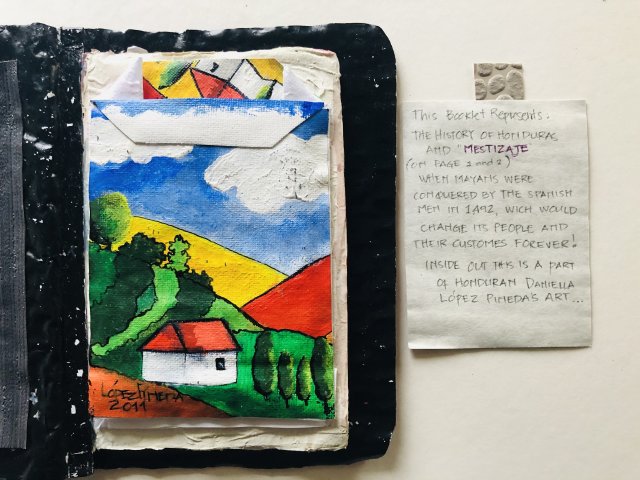 LÓPEZ PIMEDA
2011
This Booklet Represents:
THE HISTORY OF HONDURAS
AND MESTIZAJE
(ON PAGE 1 and 2)
WHEN MAYANS WERE
CONQUERED BY THE SPANISH
MEN IN 1492, WICH WOULD
CHANGE ITS PEOPLE AND
THEIR CUSTOMES FOREVER!
INSIDE OUT THIS IS A PART
OF HONDURAN DANIELLA
LÓPEZ PIMEDA'S ART...